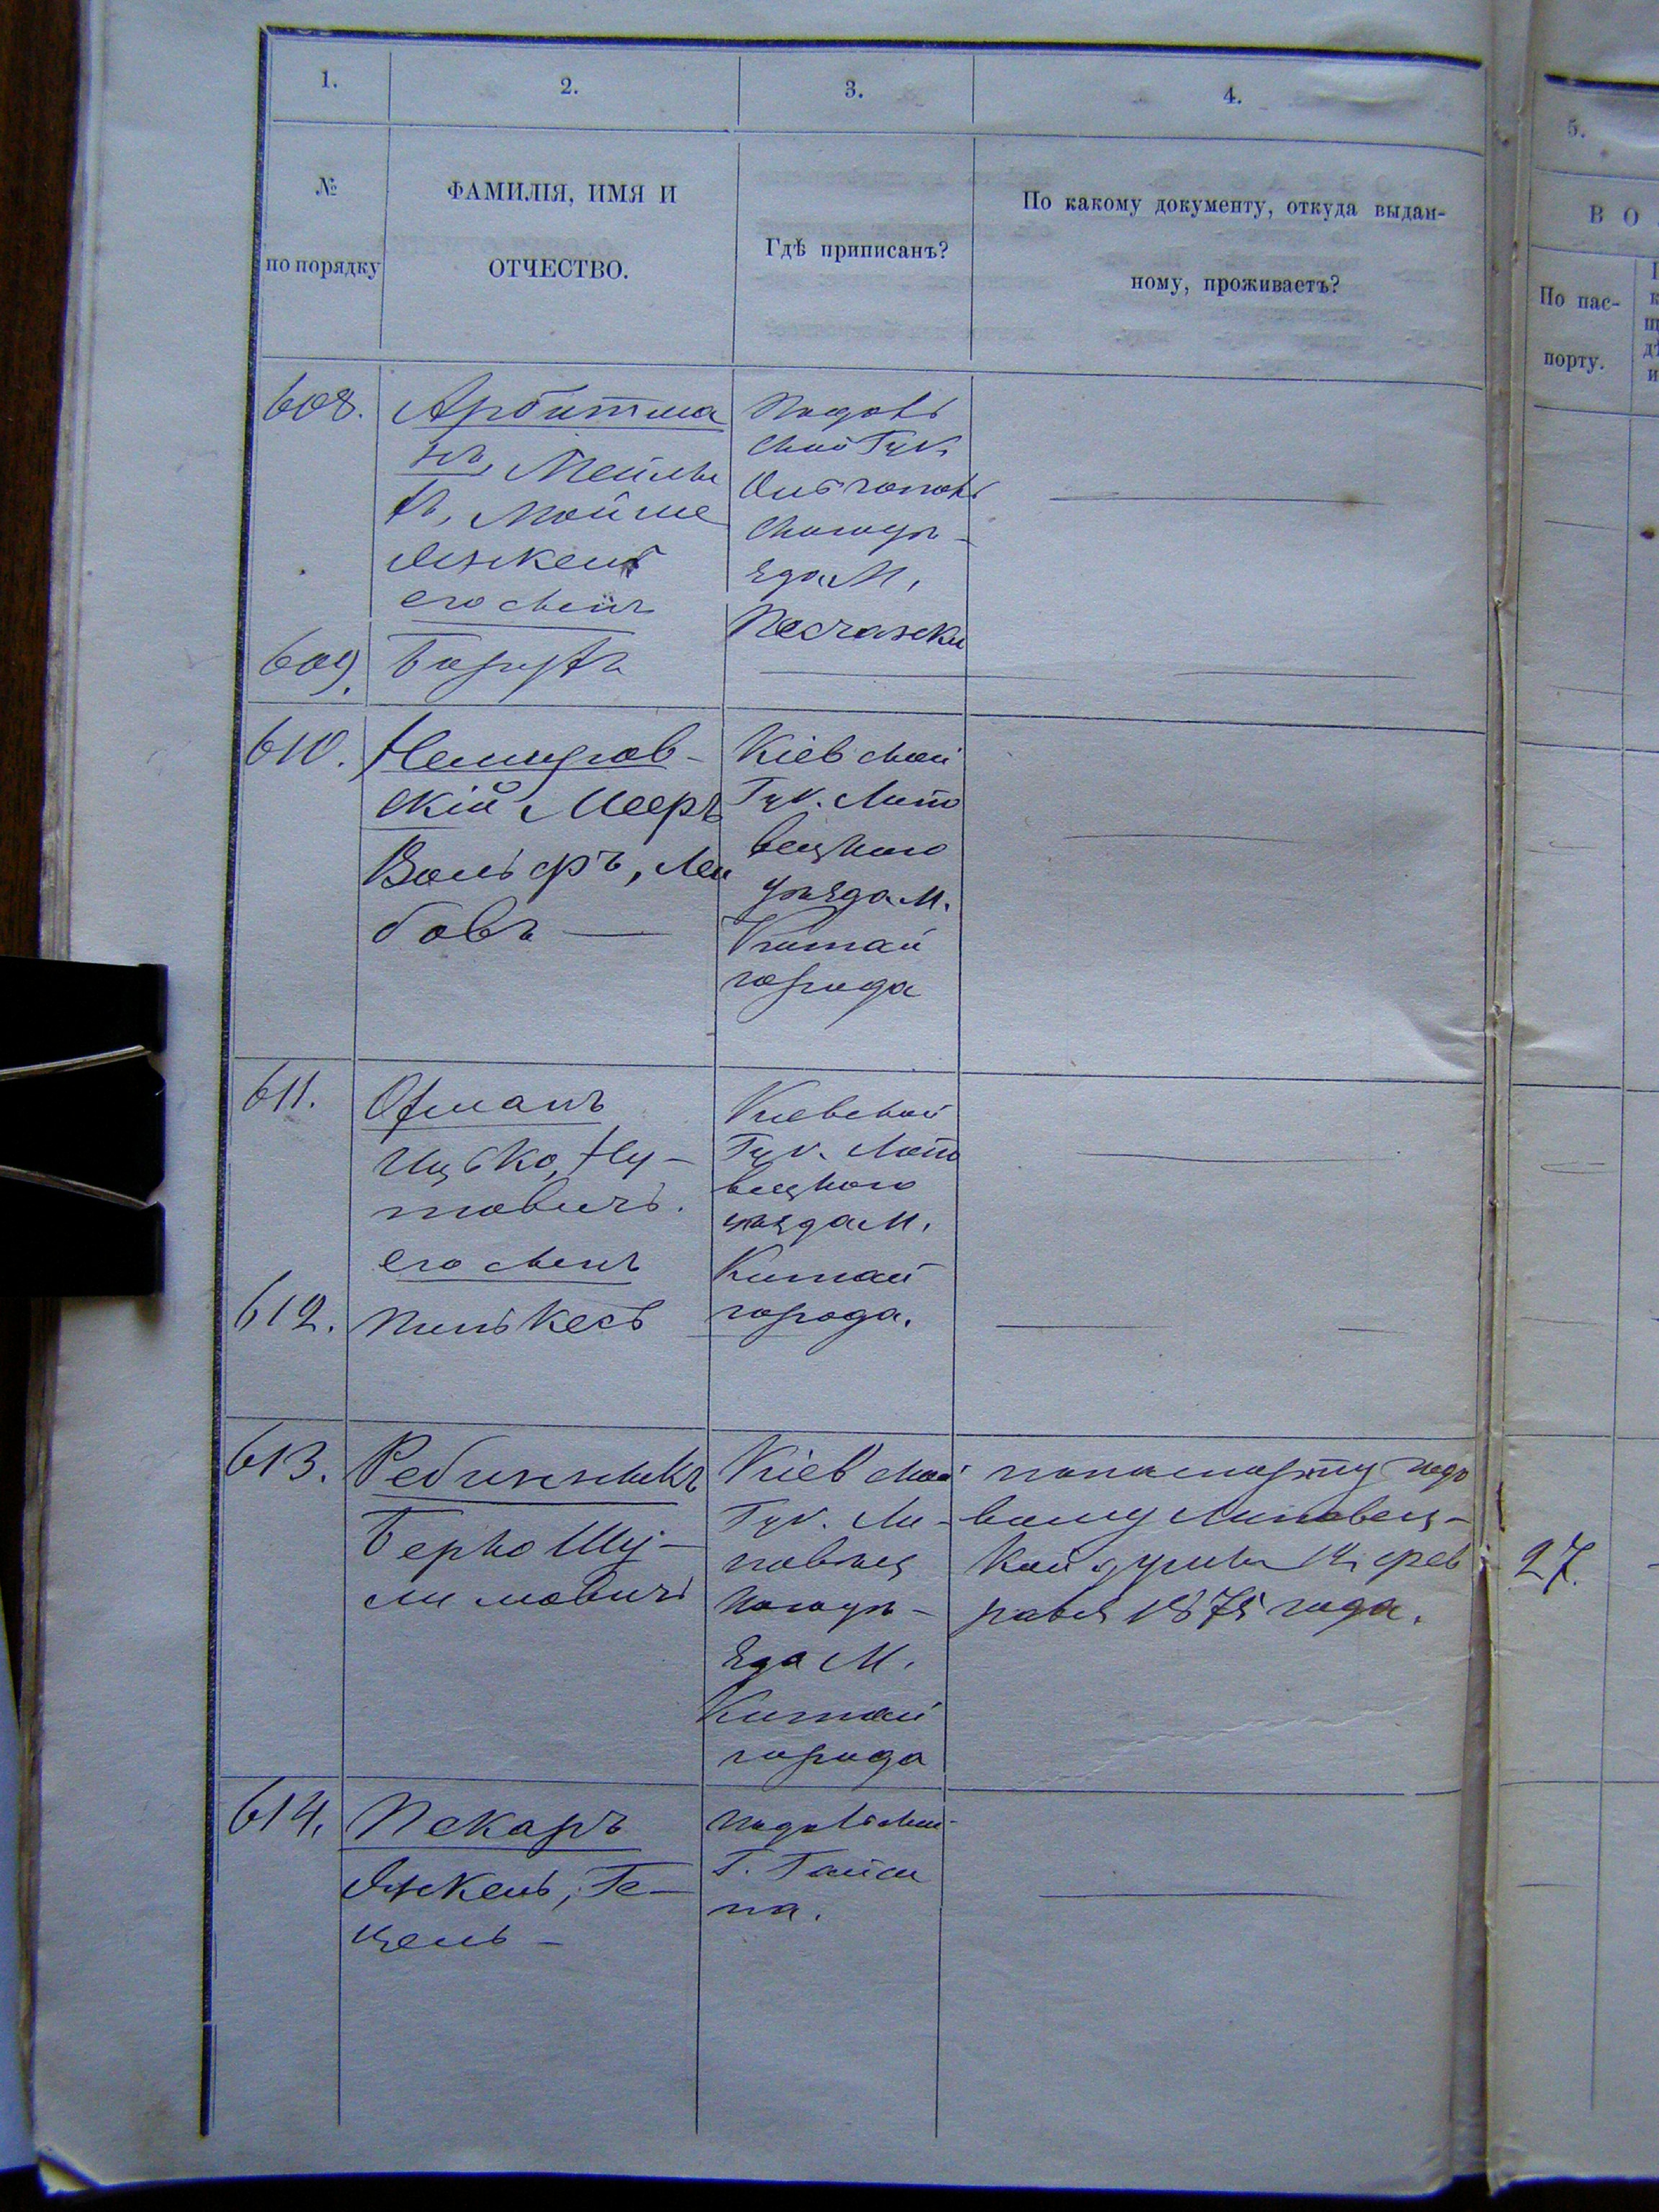 1.
2.
3.
4.
5.
№
по порядку
ФАМИЛІЯ, ИМЯ И
ОТЧЕСТВО.
Гдѣ приписанъ?
По какому документу, откуда выдан-
ному, проживаетъ?
В О
По пас-
порту.
608.
Арбитма
нъ,
Мойше
Янкель
его сынъ
Подоль
ской Губ.
Ольгополь
скаго уѣ-
зда М.
Песчанки
609.
Борухъ
610.
Немиров-
скій Мееръ
Вольфъ, Лей
бовъ —
Кіевской
Губ. Липо
вецкаго
уѣзда М.
Китай
города
611.
Офманъ
Ицько, Ну-
товичъ.
его сынъ
Кіевской
Губ. Липо
вецкаго
уѣзда М.
Китай
города.
612.
Пинькесъ
613.
Берко Шу-
лимовичъ
Кіевской
Губ. Ли-
повец
каго уѣ-
зда М.
Китай
города
по паспорту годо
вому Липовец-
кой думы фев
раля 1875 года.
27.
614.
Пекаръ
Янкель, Ге-
цель -
Подольской
Г. Гайси
на.